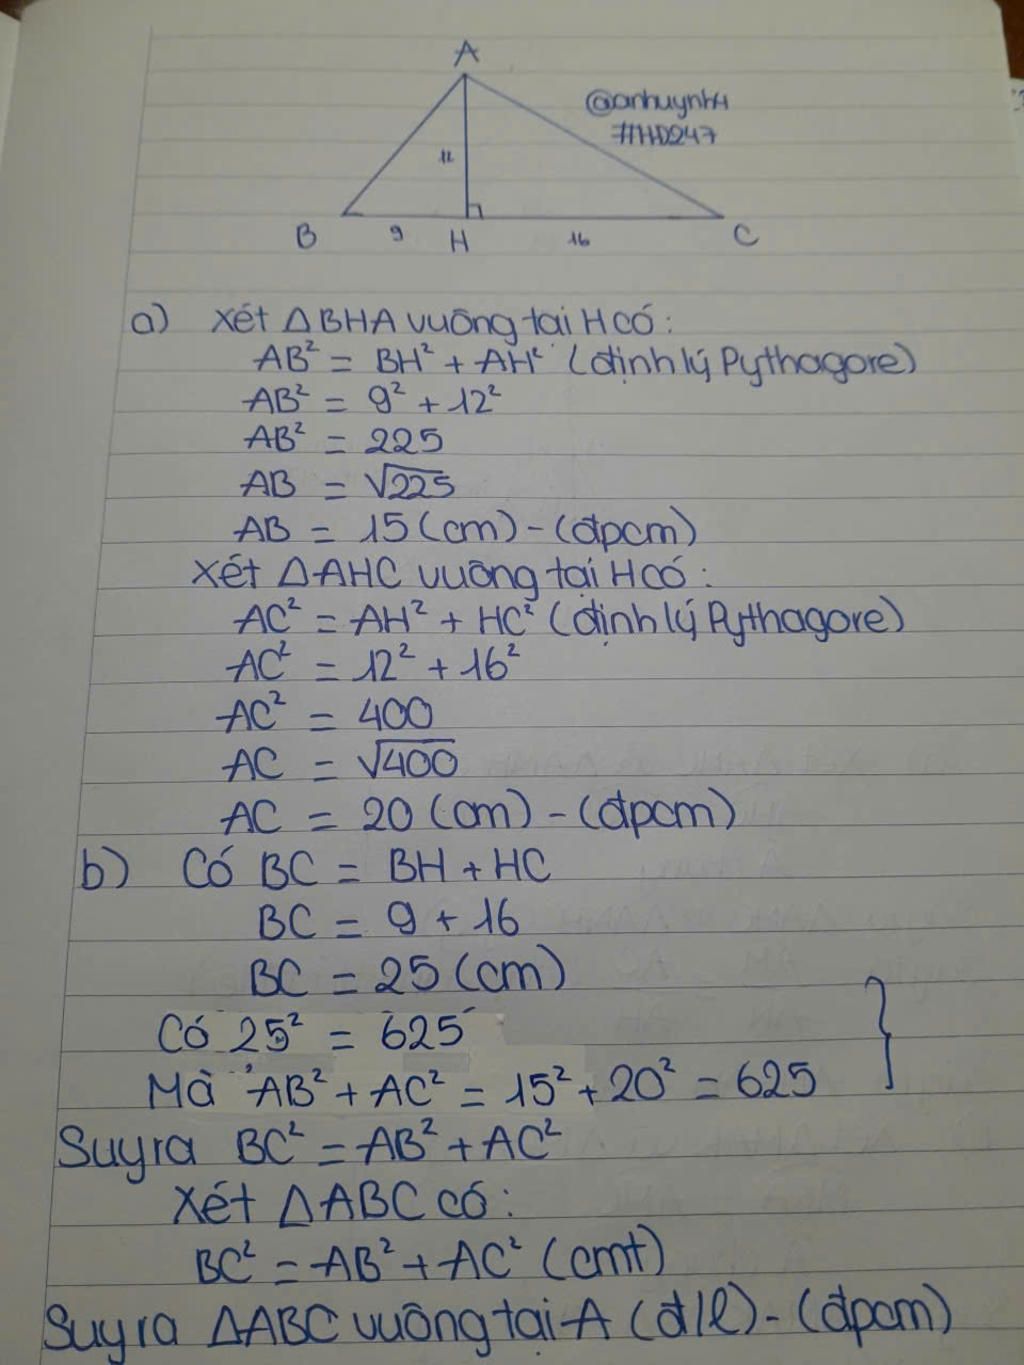 A
@anhuynh4
#HD247
12
B 9 H 16 C
a) Xét ΔBHA vuông tại H có:
AB² = BH² + AH² (định lý Pythagore)
AB² = 9² + 12²
AB² = 225
AB = √225
AB = 15 (cm) - (đpcm)
Xét ΔAHC vuông tại H có:
AC² = AH² + HC² (định lý Pythagore)
AC² = 12² + 16²
AC² = 400
AC = √400
AC = 20 (cm) - (đpcm)
b) Có BC = BH + HC
BC = 9 + 16
BC = 25 (cm)
Có 25² = 625
Mà AB² + AC² = 15² + 20² = 625 }
Suy ra BC² = AB² + AC²
Xét ΔABC có:
BC² = AB² + AC² (cmt)
Suy ra ΔABC vuông tại A (đ/l) - (đpcm)